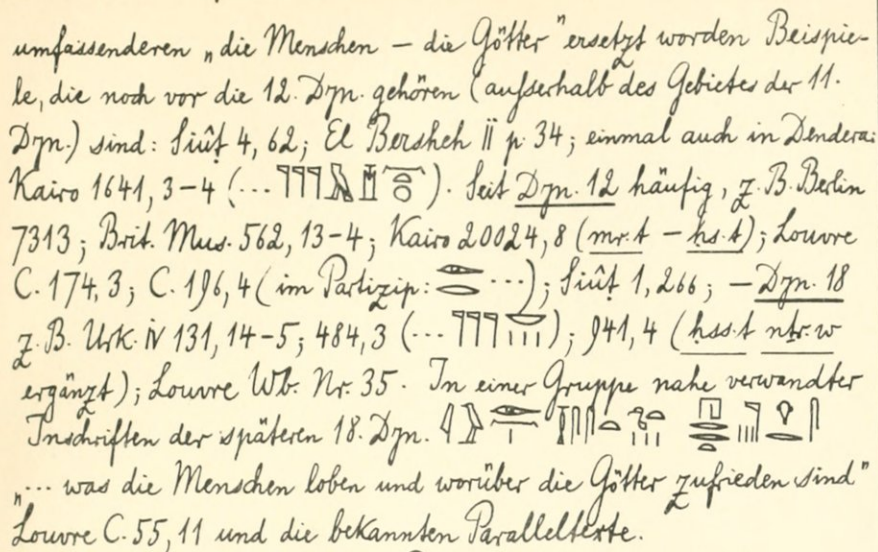 umfassenderen „die Menschen — die Götter" ersetzt worden Beispie-
le, die noch vor die 12. Dyn. gehören (außserhalb des Gebietes der 11.
Dyn.) sind: Siûṭ 4, 62; El Bersheh II p. 34; einmal auch in Dendera:
Kairo 1641, 3–4 (...). Seit Dyn. 12 häufig, z. B. Berlin
7313; Brit. Mus. 562, 13–4; Kairo 20024, 8 (mr.t — ḥs.t); Louvre
C. 174, 3; C. 196, 4 (im Partizip: ...); Siûṭ 1, 266; — Dyn. 18
z. B. Urk. IV 131, 14–5; 484, 3 (...); 941, 4 (ḥss.t nṯr.w
ergänzt); Louvre Wb. Nr. 35. In einer Gruppe nahe verwandter
Inschriften der späteren 18. Dyn.
„... was die Menschen loben und worüber die Götter zufrieden sind"
Louvre C. 55, 11 und die bekannten Paralleltexte.